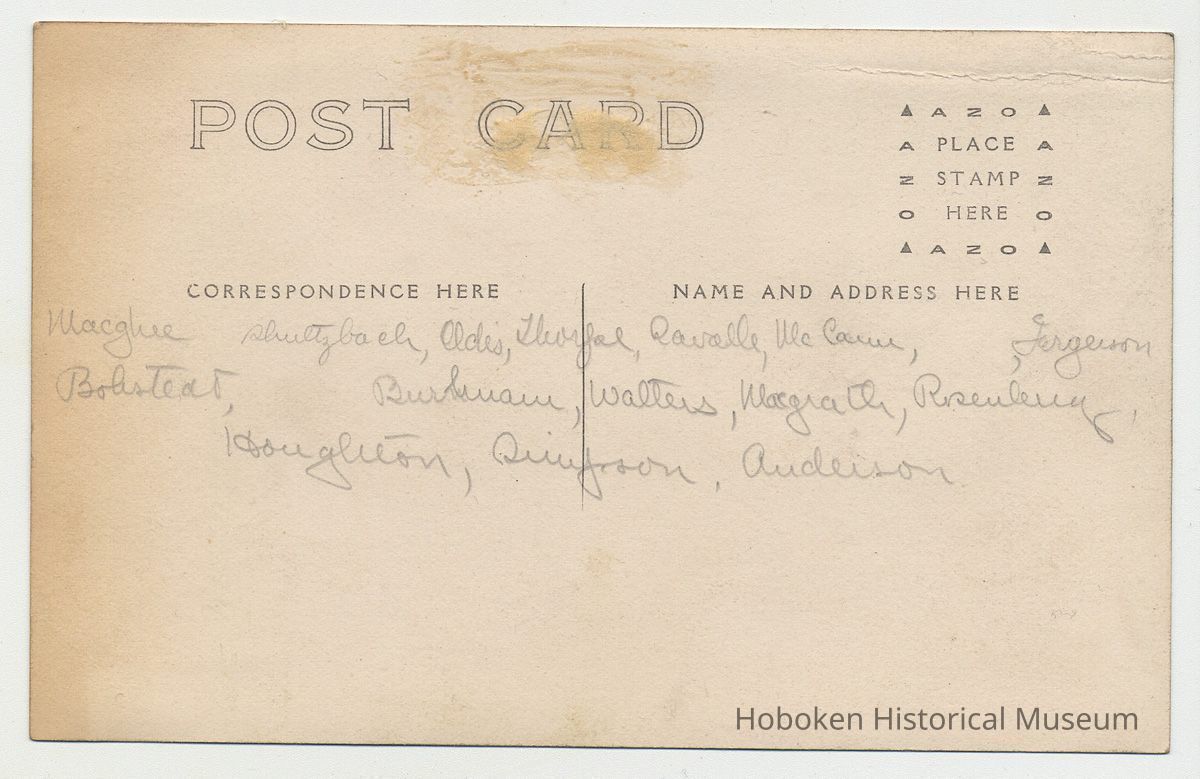 POST CARD
▲ A Z O ▲
A PLACE A
Z STAMP Z
O HERE O
▲ A Z O ▲
CORRESPONDENCE HERE
NAME AND ADDRESS HERE
Macghee Shultzbach, Oldis, Thorpe, Ravalle, McCann, , Fergerson
Bohstedt, Burkmann, Walters, Macgrath, Rosenberg,
Houghton, Simpson, Anderson
Hoboken Historical Museum